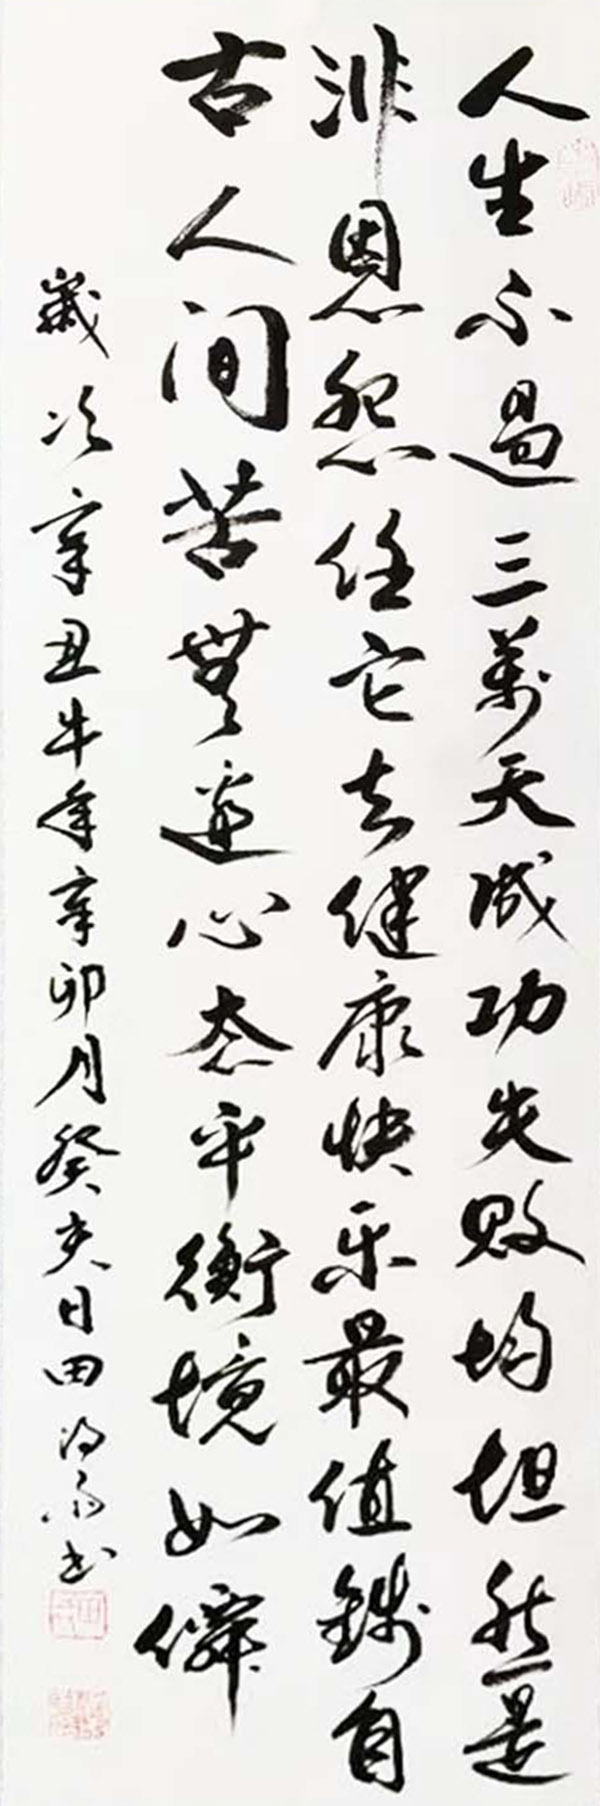 人生不過三萬天成功失敗均坦然是
非恩怨任它去健康快乐最值錢自
古人间苦無邊心态平衡境如僊
歲次辛丑牛年辛卯月癸亥日田书